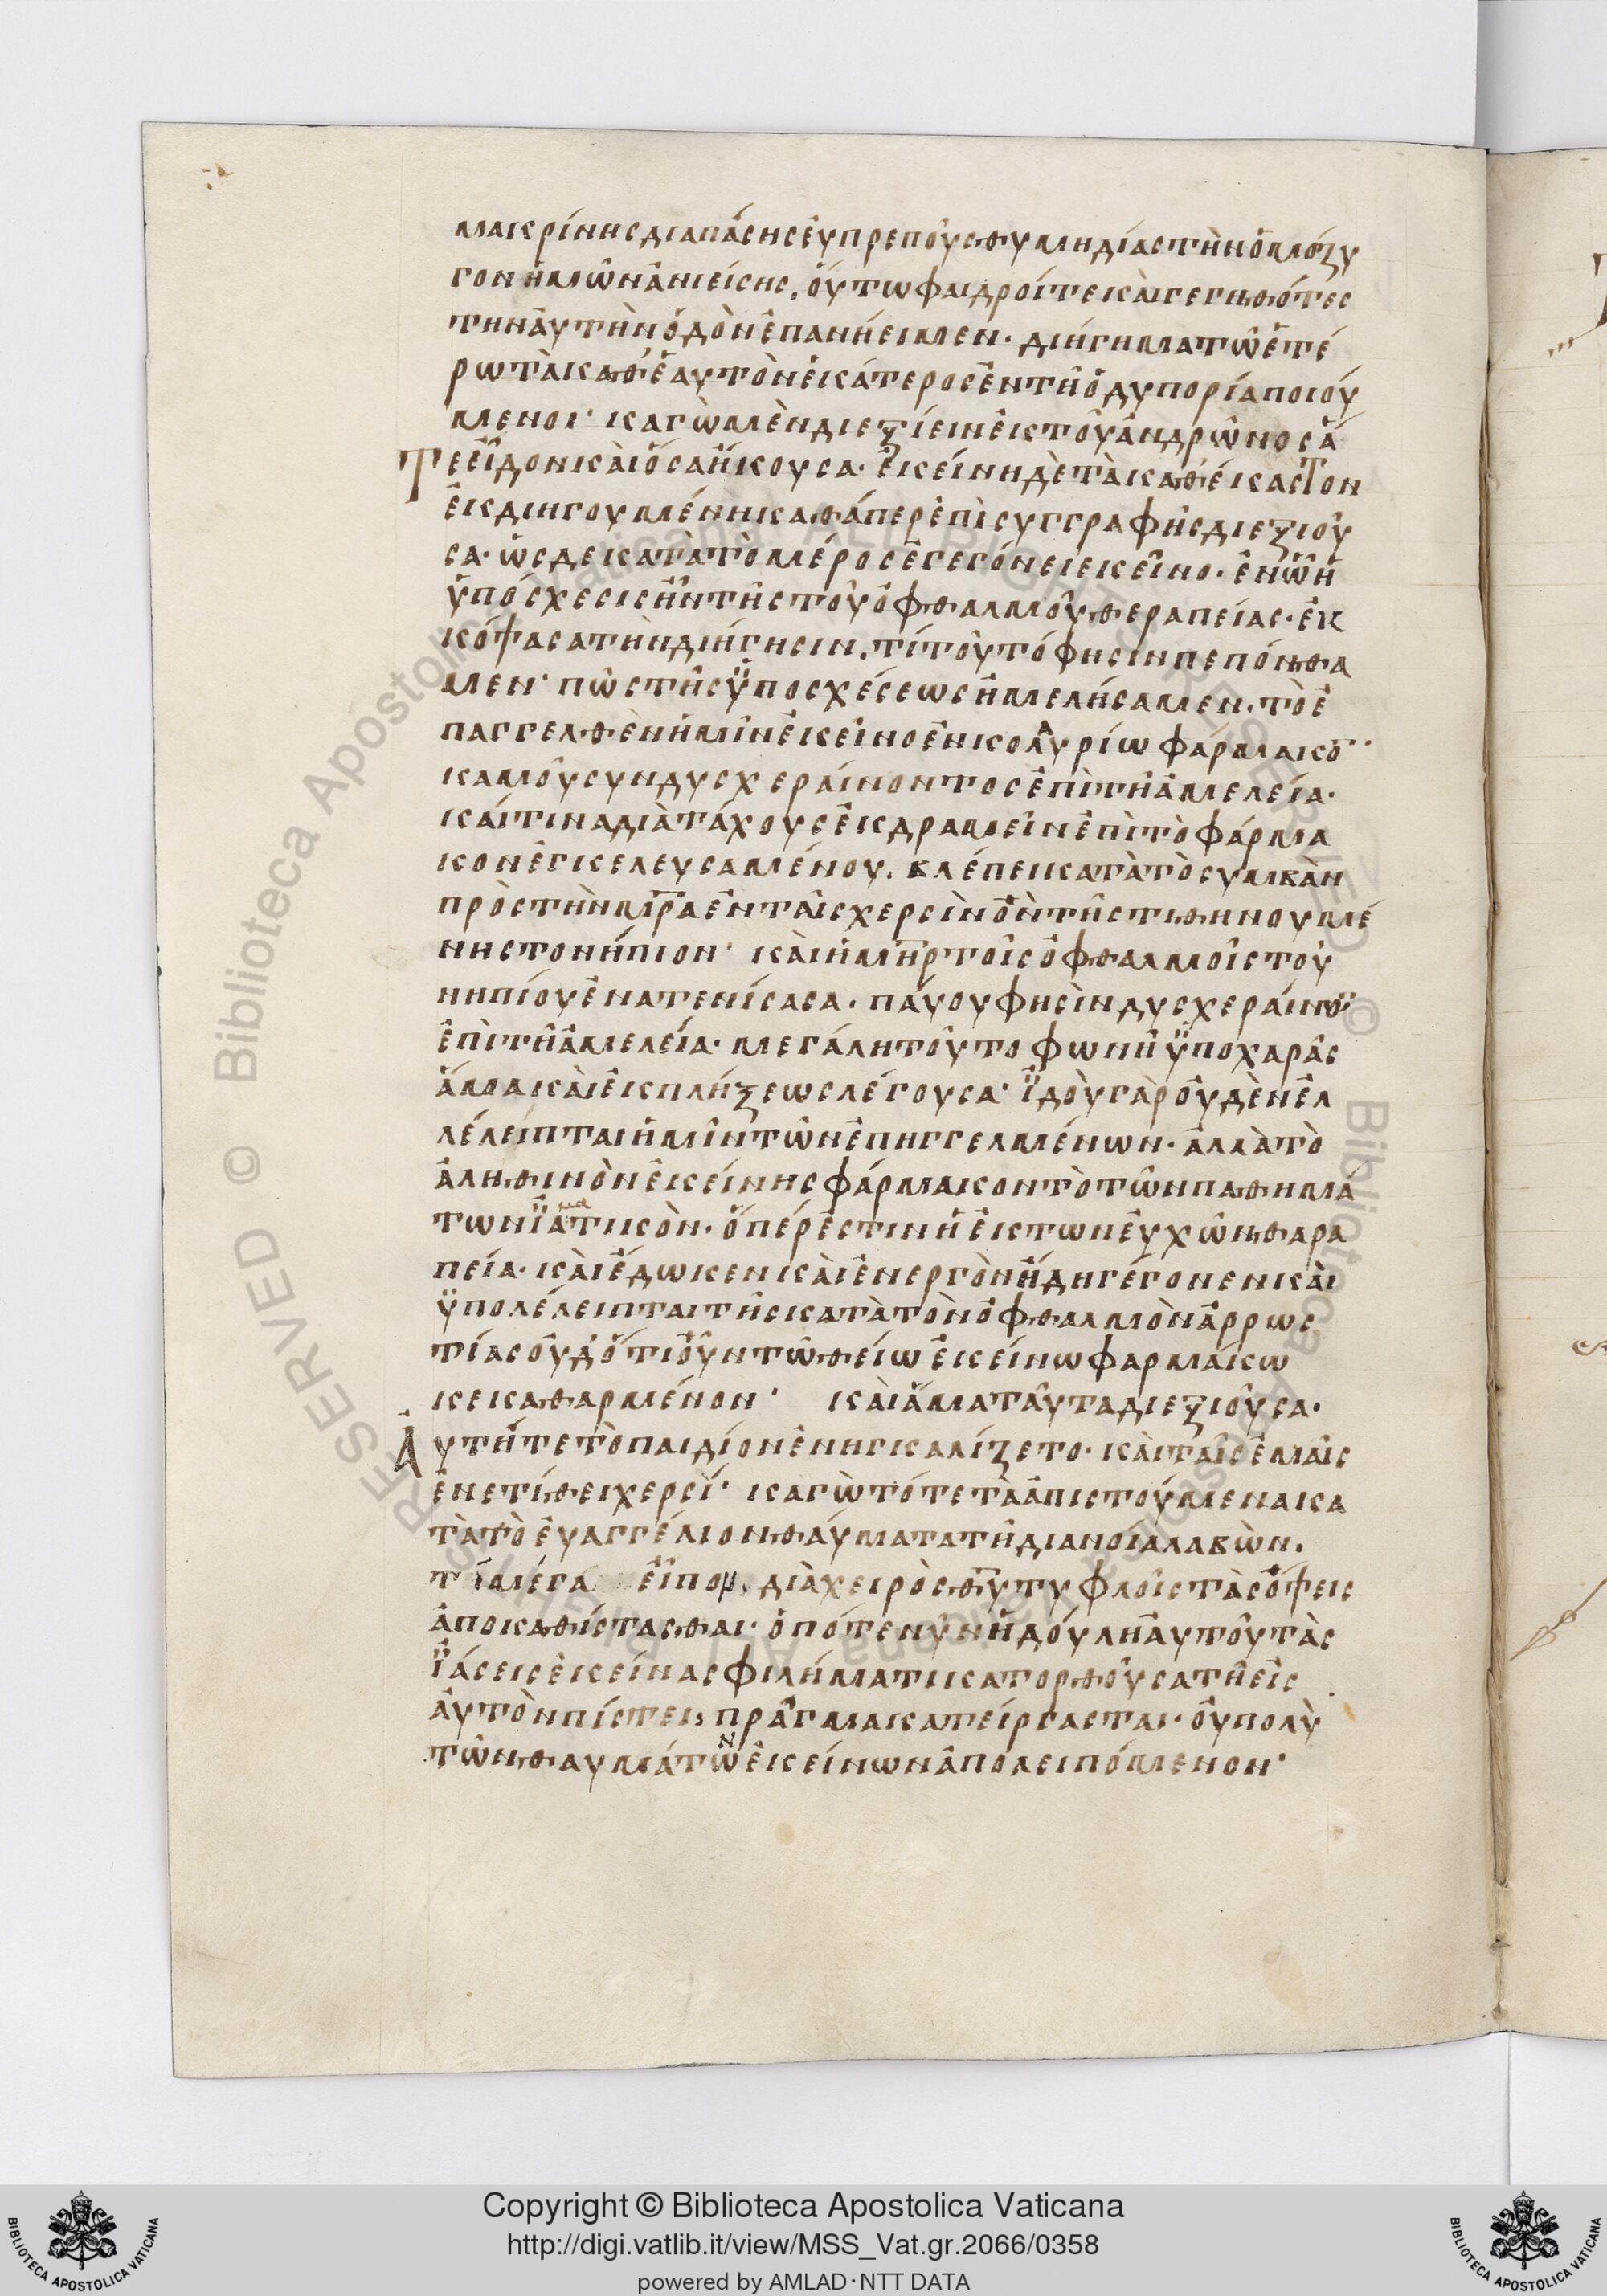 μακρίνης δια πάσης εὐπρεποῦς θυμηδίας τὴν ὁμόζυ
γον ἡμῶν ἀνιείσης, οὕτω φαιδροί τε καὶ γεγηθότες
την αὐτὴν ὁδὸν ἐπανήειμεν· διήγημα τῶ ἑτέ
ρω τὰ καθ' ἑαυτὸν ἑκάτερος ἐν τῆ ὁδυπορία ποιού
μενοι· καγὼ μὲν διεξίειν ἐκ τοῦ ἀνδρῶνος ἅ
τε εἶδον καὶ ὅσα ἤκουσα· ἐκείνη δὲ τὰ καθέκαστον
ἐκδιηγουμένη καθάπερ ἐπὶ συγγραφῆς διεξιοῦ
σα· ὡς δε κατὰ τὸ μέρος ἐγεγόνει εκεῖνο· ἐν ὧ ἡ
ὑπόσχεσις ἦν τῆς τοῦ ὀφθαλμοῦ θεραπείας· ἐκ
κόψασα τὴν διήγησιν, τί τοῦτό φησιν πεπόνθα
μεν· πῶς τῆς ὑποσχέσεως ἠμελήσαμεν, τὸ ἐ
παγγελθὲν ἡμῖν ἐκεῖνο ἐν κολλυρίω φάρμακο̅
καμοῦ συνδυσχεραίνοντος ἐπὶ τῆ ἀμελεία·
καί τινα διὰ τάχους ἐκδραμεῖν ἐπὶ τὸ φάρμα
κον ἐγκελευσαμένου, βλέπει κατὰ τὸ συμβὰν
πρὸς τὴν μ̅ρ̅α ἐν ταῖς χερσὶν ὂν τῆς τιθηνουμέ
νης το νήπιον· καὶ ἡ μ̅η̅ρ τοῖς ὀφθαλμοῖς τοῦ
νηπίου ἐνατενίσασα, παύου φησὶν δυσχεραίνων
ἐπὶ τῆ ἀμελεία· μεγάλη τοῦτο φωνῆ ὑπο χαρᾶς
ἅμα καὶ ἐκπλήξεως λέγουσα· ἰδοὺ γὰρ οὐδὲν ἐλ
λέλειπται ἡμῖν τῶν ἐπηγγελμένων· ἀλλὰ τὸ
ἀληθινὸν ἐκείνης φάρμακον τὸ τῶν παθημά
των ἰαματικὸν· ὅπέρ ἐστιν ἡ ἐκ των εὐχῶν θαρα
πεία· καὶ ἔδωκεν καὶ ἐνεργὸν ἤδη γέγονεν καὶ
ὑπολέλειπται τῆς κατὰ τὸν ὀφθαλμὸν ἀρρως
τίας οὐδ' ὁτιοῦν τῶ θείω ἐκείνω φαρμάκω
κεκαθαρμένον· καὶ ἅμα ταῦτα διεξιοῦσα·
αὐτή τε τὸ παιδίον ἐνηγκαλίζετο· καὶ ταῖς ἐμαῖς
ἐνετίθει χερσί· καγὼ τότε τὰ ἀπιστούμενα κα
τὰ τὸ εὐαγγέλιον θαύματα τῆ διανοία λαβὼν,
τί μέγα εἶπον, διὰ χειρὸς θ̅υ̅ τυφλοῖς τὰς ὄψεις
ἀποκαθίστασθαι· ὁπότε νῦν ἡ δούλη αὐτοῦ τὰς
ἰάσεις ἐκείνας φιλήματι κατορθοῦσα τῆ εἰς
αὐτὸν πίστει, πρᾶγμα κατείργασται· οὐ πολὺ
τῶν θαυμάτων ἐκείνων ἀπολειπόμενον·
Copyright © Biblioteca Apostolica Vaticana
http://digi.vatlib.it/view/MSS_Vat.gr.2066/0358
powered by AMLAD·NTT DATA